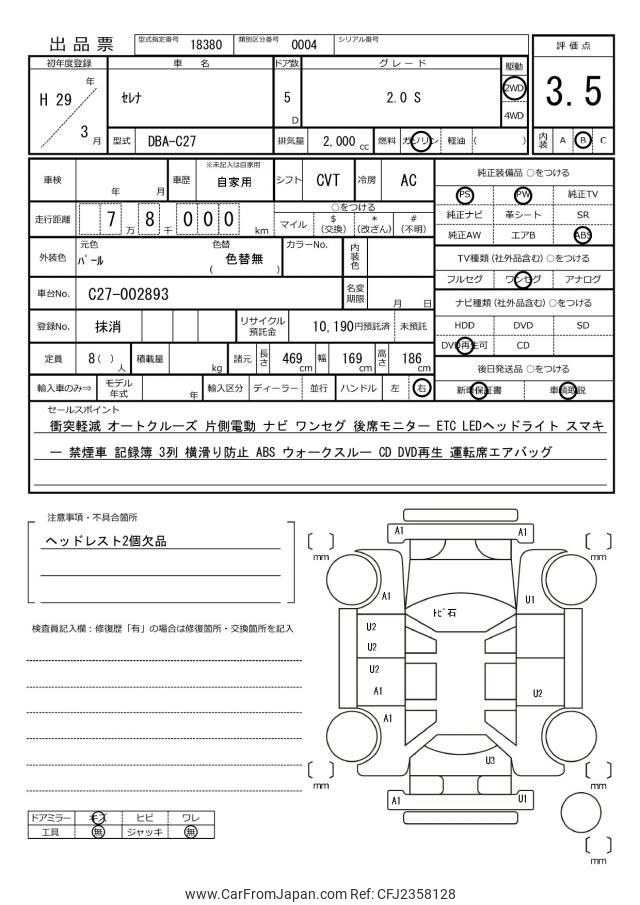 出品票 型式指定番号 18380 類別区分番号 0004 シリアル番号
初年度登録 車名 ドア数 グレード 駆動 評価点
H 29 年 3 月 セレナ 5 D 2.0 S 2WD 4WD 3.5
型式 DBA-C27 排気量 2,000 cc 燃料 ガソリン 軽油 ( ) 内装 A B C
車検 年 月 車歴 ※未記入は自家用 自家用 シフト CVT 冷房 AC
走行距離 7 万 8 千 0 0 0 km ○をつける マイル $ (交換) * (改ざん) # (不明)
外装色 元色 パール 色替 ( 色替無 ) カラーNo. 内装色
車台No. C27-002893 名変期限 月 日
登録No. 抹消 リサイクル預託金 10,190円預託済 未預託
定員 8 ( ) 人 積載量 kg 諸元 長さ 469 cm 幅 169 cm 高さ 186 cm
輸入車のみ⇒ モデル年式 年 輸入区分 ディーラー 並行 ハンドル 左 右
純正装備品 ○をつける
PS PW 純正TV
純正ナビ 革シート SR
純正AW エアB ABS
TV種類 (社外品含む) ○をつける
フルセグ ワンセグ アナログ
ナビ種類 (社外品含む) ○をつける
HDD DVD SD
DVD再生可 CD
後日発送品 ○をつける
新車保証書 車輌取説
セールスポイント
衝突軽減 オートクルーズ 片側電動 ナビ ワンセグ 後席モニター ETC LEDヘッドライト スマキ
ー 禁煙車 記録簿 3列 横滑り防止 ABS ウォークスルー CD DVD再生 運転席エアバッグ
注意事項・不具合箇所
ヘッドレスト2個欠品
検査員記入欄：修復歴「有」の場合は修復箇所・交換箇所を記入
ドアミラー キズ ヒビ ワレ
工具 無 ジャッキ 無
A1 A1
mm mm
A1 U1
トビ石
U2
U2
U2 U2
A1
A1
U3
mm mm
A1 U1
mm
www.CarFromJapan.com Ref: CFJ2358128